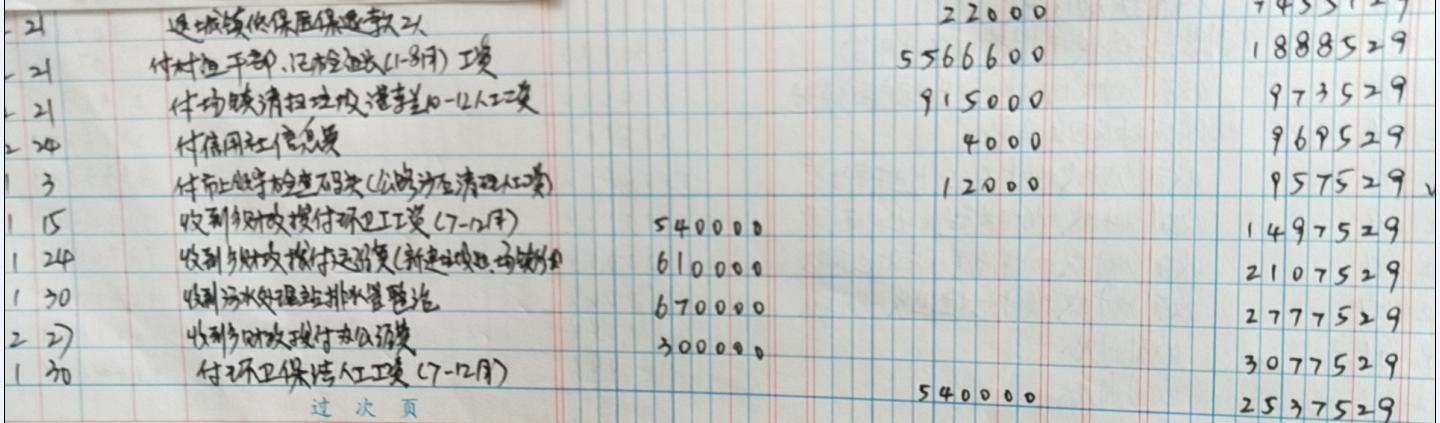 21 退城镇低保医保退款2人 22000 7455129
21 付村组干部、纪检组长(1-8月)工资 5566600 1888529
21 付场镇清扫垃圾 10-12人工工资 915000 973529
2 24 付信用社信息费 4000 969529
1 3 付市上 检查 (公路 清理人工费) 12000 957529
1 15 收到乡财政拨付环卫工工资(7-12月) 540000 1497529
1 24 收到乡财政拨付 (新建垃圾池、场镇 610000 2107529
1 30 收到污水处理站排水管整治 670000 2777529
2 27 收到乡财政拨付办公经费 300000 3077529
1 30 付环卫保洁人工工资(7-12月) 540000 2537529
过次页